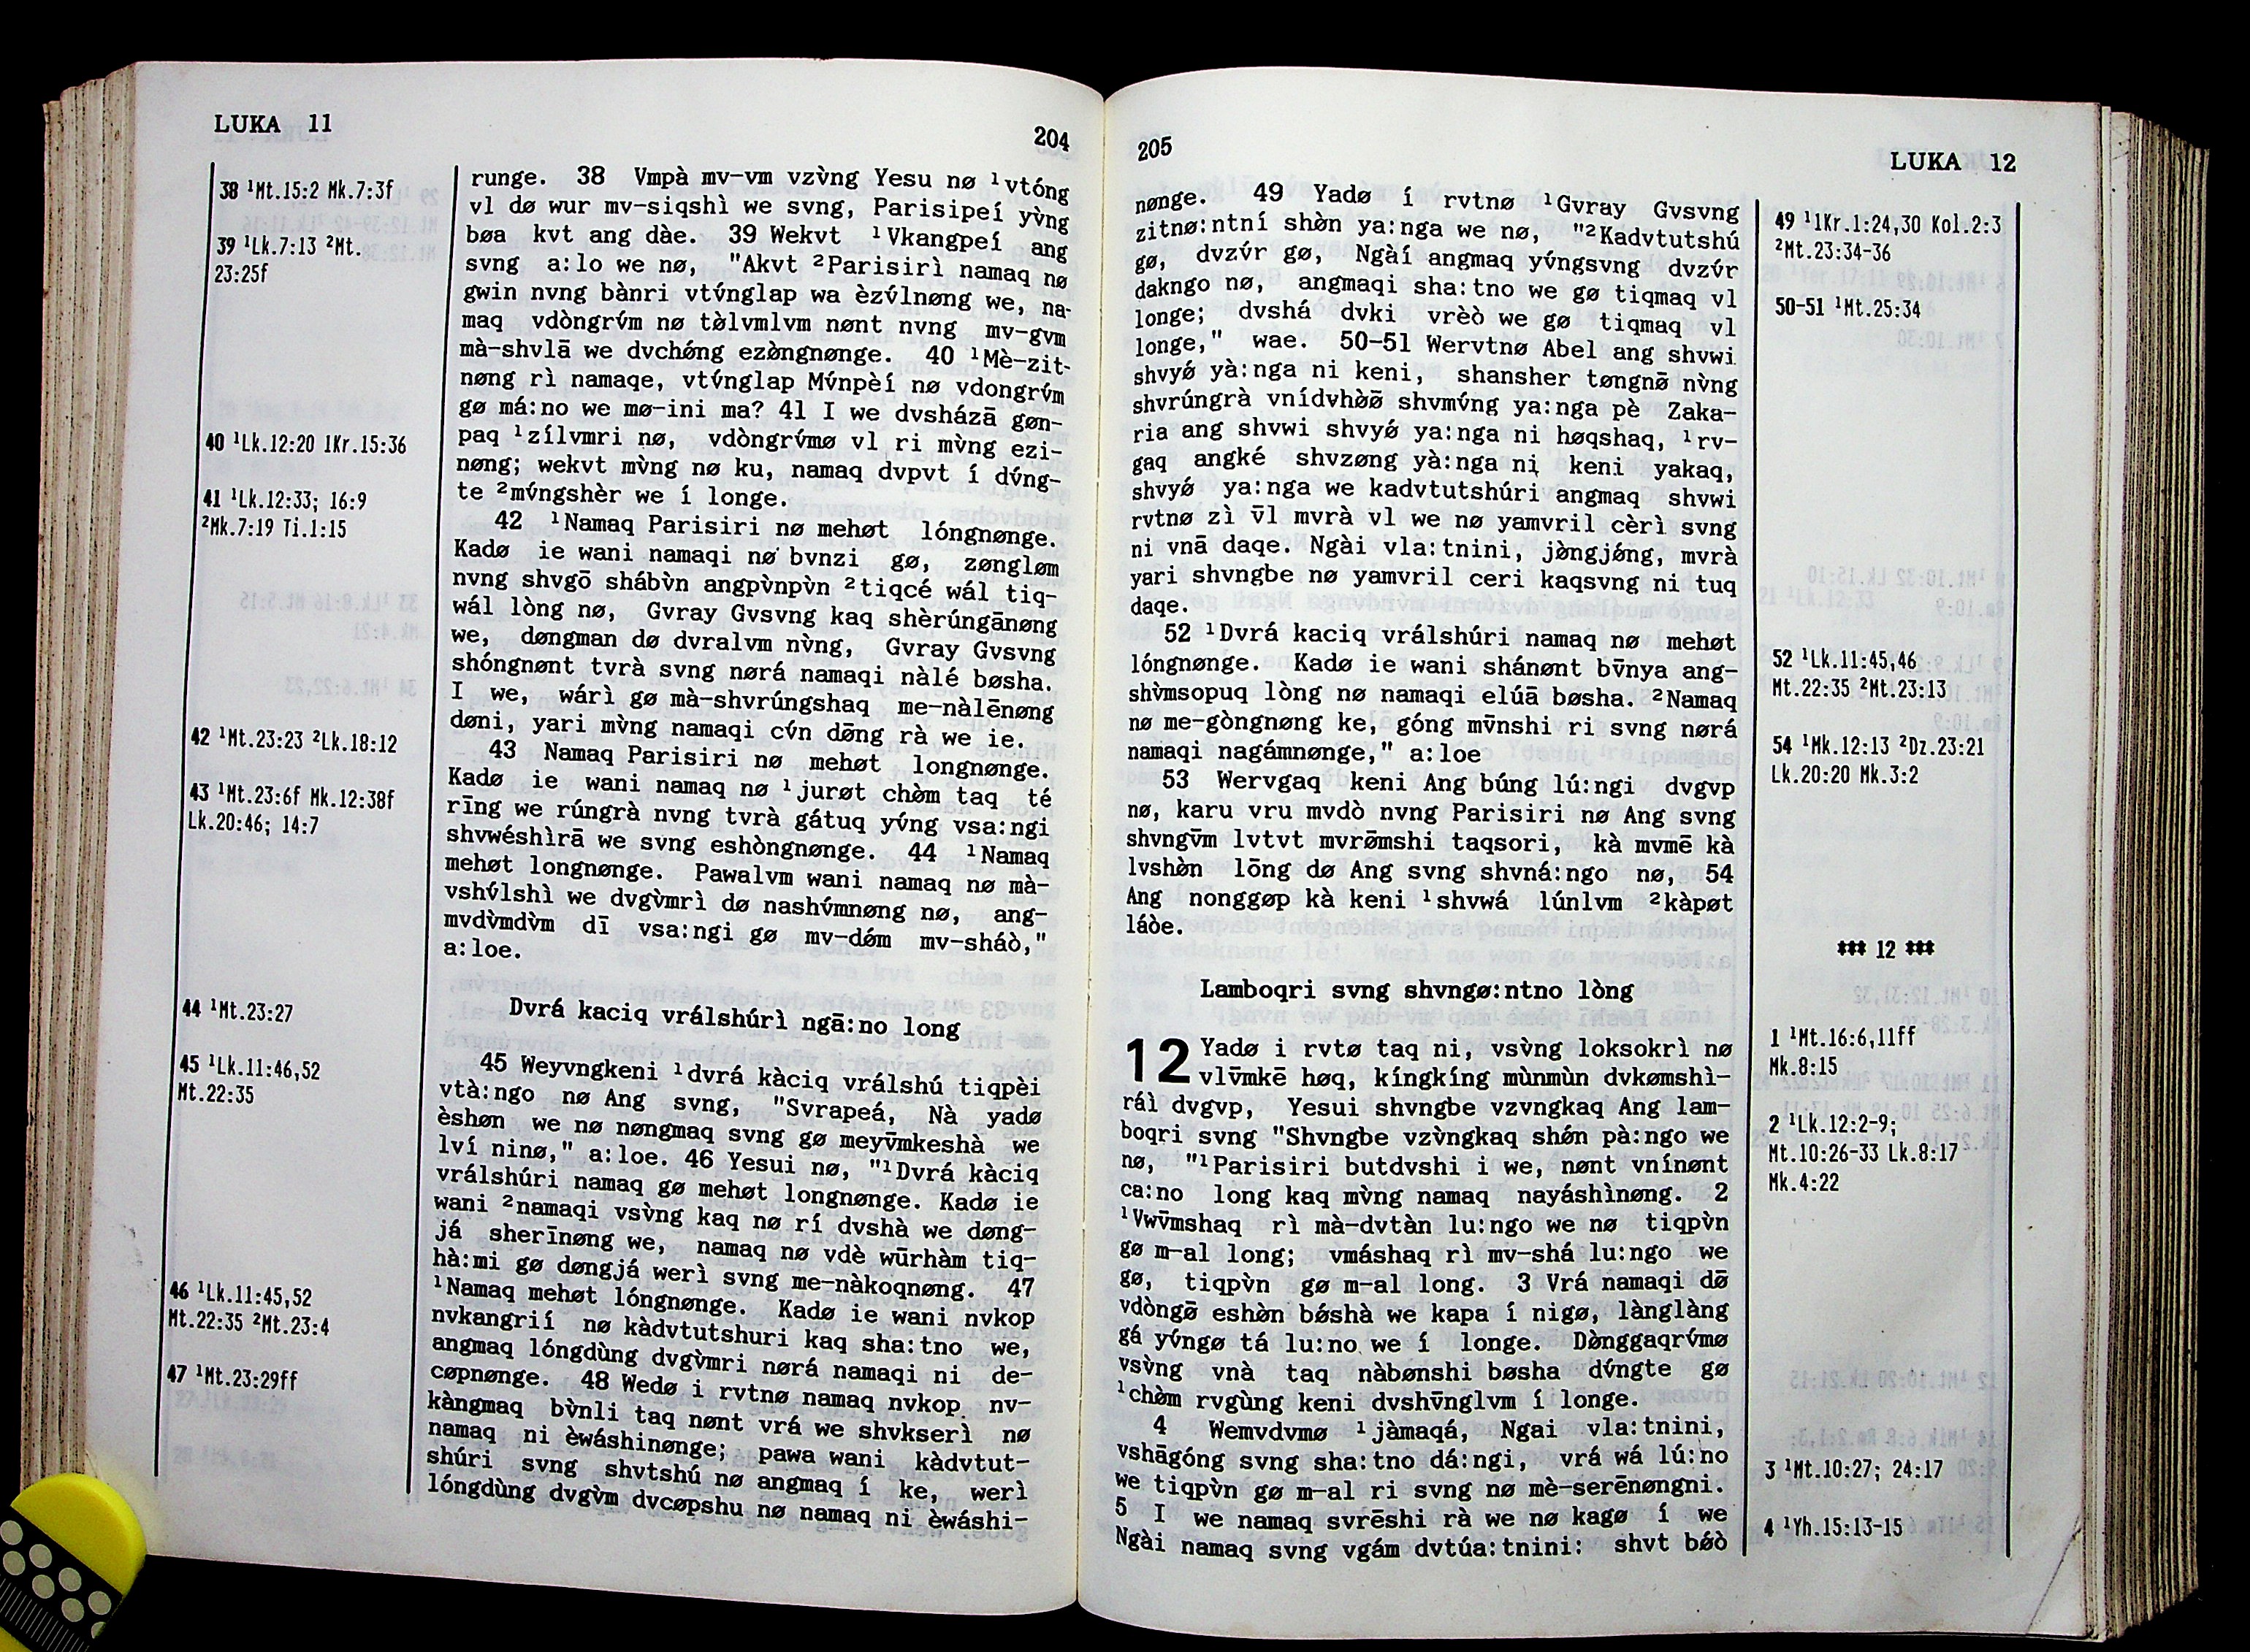 LUKA 11
204
38 ¹Mt.15:2 Mk.7:3f
39 ¹Lk.7:13 ²Mt.
23:25f
40 ¹Lk.12:20 1Kr.15:36
41 ¹Lk.12:33; 16:9
²Mk.7:19 Ti.1:15
42 ¹Mt.23:23 ²Lk.18:12
43 ¹Mt.23:6f Mk.12:38f
Lk.20:46; 14:7
44 ¹Mt.23:27
45 ¹Lk.11:46,52
Mt.22:35
46 ¹Lk.11:45,52
Mt.22:35 ²Mt.23:4
47 ¹Mt.23:29ff
runge. 38 Vmpà mv-vm vzv̀ng Yesu nø ¹vtóng
vl dø wur mv-siqshì we svng, Parisipeí yv̀ng
bøa kvt ang dàe. 39 Wekvt ¹Vkangpeí ang
svng a:lo we nø, "Akvt ²Parisirì namaq nø
gwin nvng bànri vtv́nglap wa èzv́lnøng we, na-
maq vdòngrv́m nø tø̀lvmlvm nønt nvng mv-gvm
mà-shvlā we dvchǿng ezø̀ngnønge. 40 ¹Mè-zit-
nøng rì namaqe, vtv́nglap Mv́npèí nø vdongrv́m
gø má:no we mø-ini ma? 41 I we dvsházā gøn-
paq ¹zílvmri nø, vdòngrv́mø vl ri mv̀ng ezi-
nøng; wekvt mv̀ng nø ku, namaq dvpvt í dv́ng-
te ²mv́ngshèr we í longe.
42 ¹Namaq Parisiri nø mehøt lóngnønge.
Kadø ie wani namaqi nø bvnzi gø, zøngløm
nvng shvgō shábv̀n angpv̀npv̀n ²tiqcé wál tiq-
wál lòng nø, Gvray Gvsvng kaq shèrúngānøng
we, døngman dø dvralvm nv̀ng, Gvray Gvsvng
shóngnønt tvrà svng nørá namaqi nàlé bøsha.
I we, wárì gø mà-shvrúngshaq me-nàlēnøng
døni, yari mv̀ng namaqi cv́n dø̄ng rà we ie.
43 Namaq Parisiri nø mehøt longnønge.
Kadø ie wani namaq nø ¹jurøt chø̀m taq té
rīng we rúngrà nvng tvrà gátuq yv́ng vsa:ngi
shvwéshìrā we svng eshòngnønge. 44 ¹Namaq
mehøt longnønge. Pawalvm wani namaq nø mà-
vshv́lshì we dvgv̀mrì dø nashv́mnøng nø, ang-
mvdv̀mdv̀m dī vsa:ngi gø mv-dǿm mv-sháò,"
a:loe.
Dvrá kaciq vrálshúrì ngā:no long
45 Weyvngkeni ¹dvrá kàciq vrálshú tiqpèi
vtà:ngo nø Ang svng, "Svrapeá, Nà yadø
èshøn we nø nøngmaq svng gø meyv̄mkeshà we
lví ninø," a:loe. 46 Yesui nø, "¹Dvrá kàciq
vrálshúri namaq gø mehøt longnønge. Kadø ie
wani ²namaqi vsv̀ng kaq nø rí dvshà we døng-
já sherīnøng we, namaq nø vdè wūrhàm tiq-
hà:mi gø døngjá werì svng me-nàkoqnøng. 47
¹Namaq mehøt lóngnønge. Kadø ie wani nvkop
nvkangrií nø kàdvtutshuri kaq sha:tno we,
angmaq lóngdùng dvgv̀mri nørá namaqi ni de-
cøpnønge. 48 Wedø i rvtnø namaq nvkop nv-
kàngmaq bv̀nli taq nønt vrá we shvkserì nø
namaq ni èwáshinønge; pawa wani kàdvtut-
shúri svng shvtshú nø angmaq í ke, werì
lóngdùng dvgv̀m dvcøpshu nø namaq ni èwáshi-
205
LUKA 12
nønge. 49 Yadø í rvtnø ¹Gvray Gvsvng
zitnø:ntní shø̀n ya:nga we nø, "²Kadvtutshú
gø, dvzv́r gø, Ngàí angmaq yv́ngsvng dvzv́r
dakngo nø, angmaqi sha:tno we gø tiqmaq vl
longe; dvshá dvki vrèò we gø tiqmaq vl
longe," wae. 50-51 Wervtnø Abel ang shvwi
shvyǿ yà:nga ni keni, shansher tøngnø̄ nv̀ng
shvrúngrà vnídvhø̀ø̄ shvmv́ng ya:nga pè Zaka-
ria ang shvwi shvyǿ ya:nga ni høqshaq, ¹rv-
gaq angké shvzøng yà:nga ni keni yakaq,
shvyǿ ya:nga we kadvtutshúri angmaq shvwi
rvtnø zì v̄l mvrà vl we nø yamvril cèrì svng
ni vnā daqe. Ngài vla:tnini, jø̀ngjǿng, mvrà
yari shvngbe nø yamvril ceri kaqsvng ni tuq
daqe.
52 ¹Dvrá kaciq vrálshúri namaq nø mehøt
lóngnønge. Kadø ie wani shánønt bv̄nya ang-
shv̀msopuq lòng nø namaqi elúā bøsha. ²Namaq
nø me-gòngnøng ke, góng mv̄nshi ri svng nørá
namaqi nagámnønge," a:loe
53 Wervgaq keni Ang búng lú:ngi dvgvp
nø, karu vru mvdò nvng Parisiri nø Ang svng
shvngv̄m lvtvt mvrø̄mshi taqsori, kà mvmē kà
lvshø̀n lōng dø Ang svng shvná:ngo nø, 54
Ang nonggøp kà keni ¹shvwá lúnlvm ²kàpøt
láòe.
Lamboqri svng shvngø:ntno lòng
12 Yadø i rvtø taq ni, vsv̀ng loksokrì nø
vlv̄mkē høq, kíngkíng mùnmùn dvkømshì-
ráì dvgvp, Yesui shvngbe vzvngkaq Ang lam-
boqri svng "Shvngbe vzv̀ngkaq shǿn pà:ngo we
nø, "¹Parisiri butdvshi i we, nønt vnínønt
ca:no long kaq mv̀ng namaq nayáshìnøng. 2
¹Vwv̄mshaq rì mà-dvtàn lu:ngo we nø tiqpv̀n
gø m-al long; vmáshaq rì mv-shá lu:ngo we
gø, tiqpv̀n gø m-al long. 3 Vrá namaqi dø̄
vdòngø̄ eshø̀n bǿshà we kapa í nigø, lànglàng
gá yv́ngø tá lu:no we í longe. Dø̀nggaqrv́mø
vsv̀ng vnà taq nàbønshi bøsha dv́ngte gø
¹chø̀m rvgùng keni dvshv̄nglvm í longe.
4 Wemvdvmø ¹jàmaqá, Ngai vla:tnini,
vshāgóng svng sha:tno dá:ngi, vrá wá lú:no
we tiqpv̀n gø m-al ri svng nø mè-serēnøngni.
5 I we namaq svrēshi rà we nø kagø í we
Ngài namaq svng vgám dvtúa:tnini: shvt bǿò
49 ¹1Kr.1:24,30 Kol.2:3
²Mt.23:34-36
50-51 ¹Mt.25:34
52 ¹Lk.11:45,46
Mt.22:35 ²Mt.23:13
54 ¹Mk.12:13 ²Dz.23:21
Lk.20:20 Mk.3:2
*** 12 ***
1 ¹Mt.16:6,11ff
Mk.8:15
2 ¹Lk.12:2-9;
Mt.10:26-33 Lk.8:17
Mk.4:22
3 ¹Mt.10:27; 24:17
4 ¹Yh.15:13-15